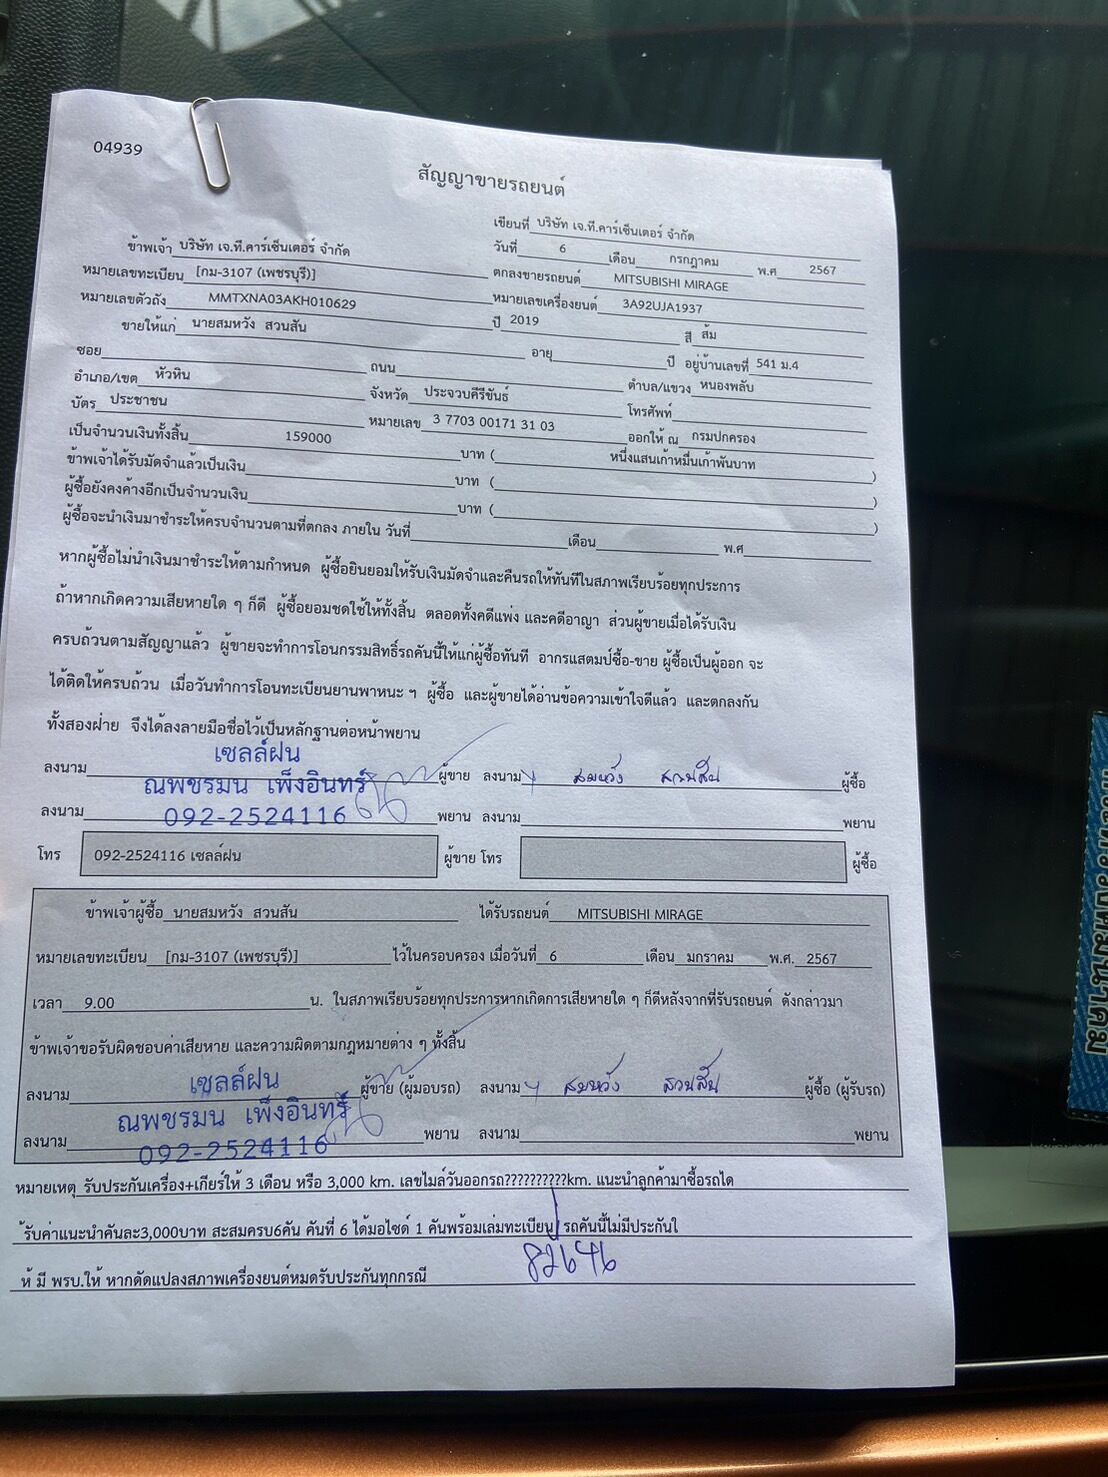 04939
สัญญาขายรถยนต์
เขียนที่ บริษัท เจ.ที.คาร์เซ็นเตอร์ จำกัด
ข้าพเจ้า บริษัท เจ.ที.คาร์เซ็นเตอร์ จำกัด วันที่ 6 เดือน กรกฎาคม พ.ศ 2567
หมายเลขทะเบียน [กม-3107 (เพชรบุรี)] ตกลงขายรถยนต์ MITSUBISHI MIRAGE
หมายเลขตัวถัง MMTXNA03AKH010629 หมายเลขเครื่องยนต์ 3A92UJA1937
ขายให้แก่ นายสมหวัง สวนสัน ปี 2019 สี ส้ม
ซอย ถนน อายุ ปี อยู่บ้านเลขที่ 541 ม.4
อำเภอ/เขต หัวหิน จังหวัด ประจวบคีรีขันธ์ ตำบล/แขวง หนองพลับ
บัตร ประชาชน หมายเลข 3 7703 00171 31 03 โทรศัพท์
ออกให้ ณ กรมปกครอง
เป็นจำนวนเงินทั้งสิ้น 159000 บาท ( หนึ่งแสนเก้าหมื่นเก้าพันบาท )
ข้าพเจ้าได้รับมัดจำแล้วเป็นเงิน บาท ( )
ผู้ซื้อยังคงค้างอีกเป็นจำนวนเงิน บาท ( )
ผู้ซื้อจะนำเงินมาชำระให้ครบจำนวนตามที่ตกลง ภายใน วันที่ เดือน พ.ศ
หากผู้ซื้อไม่นำเงินมาชำระให้ตามกำหนด ผู้ซื้อยินยอมให้รับเงินมัดจำและคืนรถให้ทันทีในสภาพเรียบร้อยทุกประการ
ถ้าหากเกิดความเสียหายใด ๆ ก็ดี ผู้ซื้อยอมชดใช้ให้ทั้งสิ้น ตลอดทั้งคดีแพ่ง และคดีอาญา ส่วนผู้ขายเมื่อได้รับเงิน
ครบถ้วนตามสัญญาแล้ว ผู้ขายจะทำการโอนกรรมสิทธิ์รถคันนี้ให้แก่ผู้ซื้อทันที อากรแสตมป์ซื้อ-ขาย ผู้ซื้อเป็นผู้ออก จะ
ได้ติดให้ครบถ้วน เมื่อวันทำการโอนทะเบียนยานพาหนะ ฯ ผู้ซื้อ และผู้ขายได้อ่านข้อความเข้าใจดีแล้ว และตกลงกัน
ทั้งสองฝ่าย จึงได้ลงลายมือชื่อไว้เป็นหลักฐานต่อหน้าพยาน
เซลล์ฝน
ลงนาม ณพชรมน เพ็งอินทร์ ผู้ขาย ลงนาม สมหวัง สวนสัน ผู้ซื้อ
ลงนาม 092-2524116 พยาน ลงนาม พยาน
โทร 092-2524116 เซลล์ฝน ผู้ขาย โทร ผู้ซื้อ
ข้าพเจ้าผู้ซื้อ นายสมหวัง สวนสัน ได้รับรถยนต์ MITSUBISHI MIRAGE
หมายเลขทะเบียน [กม-3107 (เพชรบุรี)] ไว้ในครอบครอง เมื่อวันที่ 6 เดือน มกราคม พ.ศ. 2567
เวลา 9.00 น. ในสภาพเรียบร้อยทุกประการหากเกิดการเสียหายใด ๆ ก็ดีหลังจากที่รับรถยนต์ ดังกล่าวมา
ข้าพเจ้าขอรับผิดชอบค่าเสียหาย และความผิดตามกฎหมายต่าง ๆ ทั้งสิ้น
เซลล์ฝน
ลงนาม ณพชรมน เพ็งอินทร์ ผู้ขาย (ผู้มอบรถ) ลงนาม สมหวัง สวนสัน ผู้ซื้อ (ผู้รับรถ)
ลงนาม 092-2524116 พยาน ลงนาม พยาน
หมายเหตุ รับประกันเครื่อง+เกียร์ให้ 3 เดือน หรือ 3,000 km. เลขไมล์วันออกรถ??????????km. แนะนำลูกค้ามาซื้อรถได
้รับค่าแนะนำคันละ3,000บาท สะสมครบ6คัน คันที่ 6 ได้มอไซด์ 1 คันพร้อมเล่มทะเบียน รถคันนี้ไม่มีประกันใ
ห้ มี พรบ.ให้ หากดัดแปลงสภาพเครื่องยนต์หมดรับประกันทุกกรณี
82646